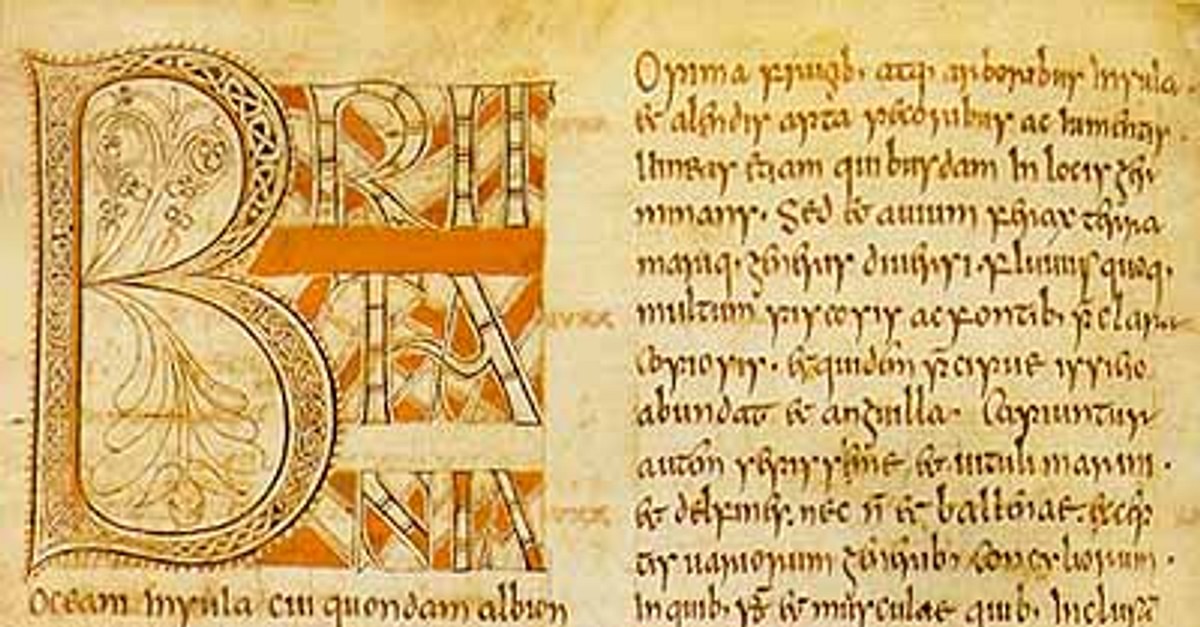 BRIT
TA
NIA
oceani insula cui quondam albion
Opima frugib· atq· arboribus insula·
& alendis apta pecoribus ac iumentis·
uineas etiam quibusdam in locis ger
minans· Sed & auium ferax terra
mariq· generis diuersi· fluuiis quoq·
multum piscosis ac fontib· p̄claris
copiosis· & quidem p̄cipue issicio
abundat & anguilla· Capiuntur
autem & uituli marini·
& delfines· nec n̄ & ballenae· excep
tis uariorum generib· concyliorum·
In quib· s̄ & musculae quib·